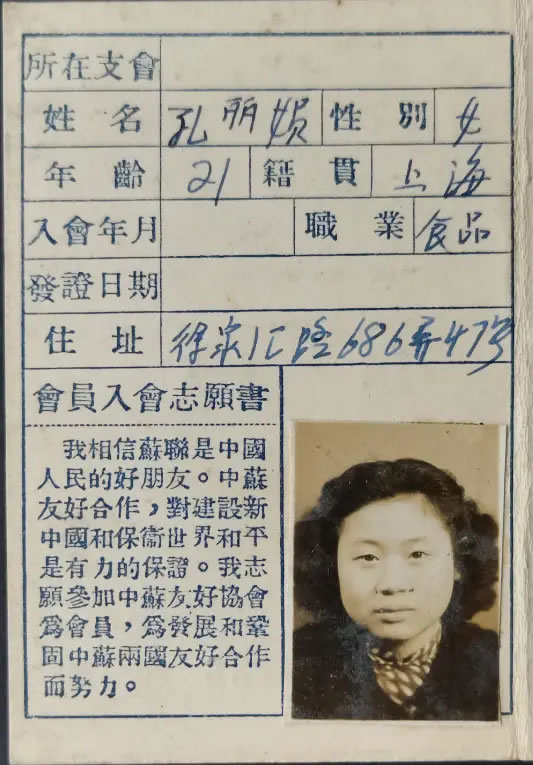 所在支會
姓名 孔丽娟 性別 女
年齡 21 籍貫 上海
入會年月 職業 食品
發證日期
住址 徐家汇路686弄47号
會員入會志願書
我相信蘇聯是中國
人民的好朋友。中蘇
友好合作，對建設新
中國和保衛世界和平
是有力的保證。我志
願參加中蘇友好協會
爲會員，爲發展和鞏
固中蘇兩國友好合作
而努力。